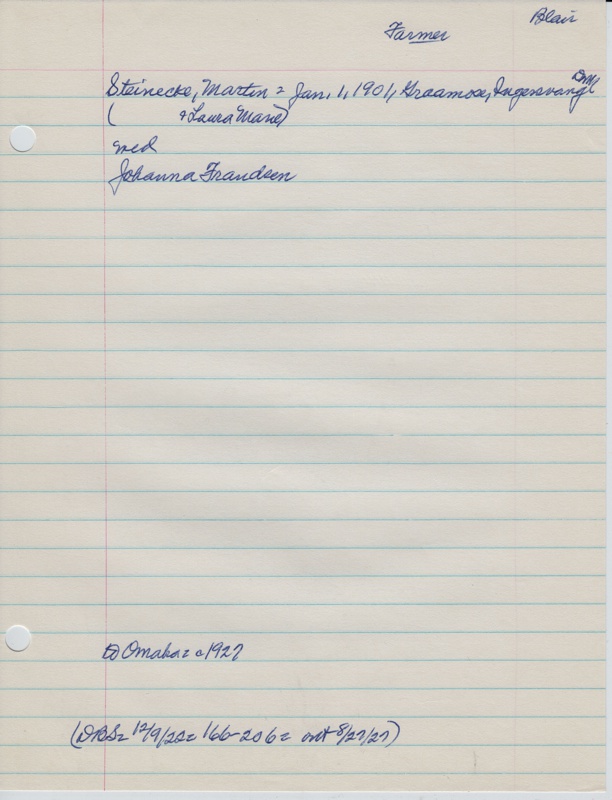 Blair
Farmer
Steinecke, Martin = Jan. 1, 1901, Graamose, Ingersvang
( + Laura Marie)
med
Johanna Frandsen
to Omaha = c 1927
(DBS= 12/9/22= 166-206= out 8/27/27)